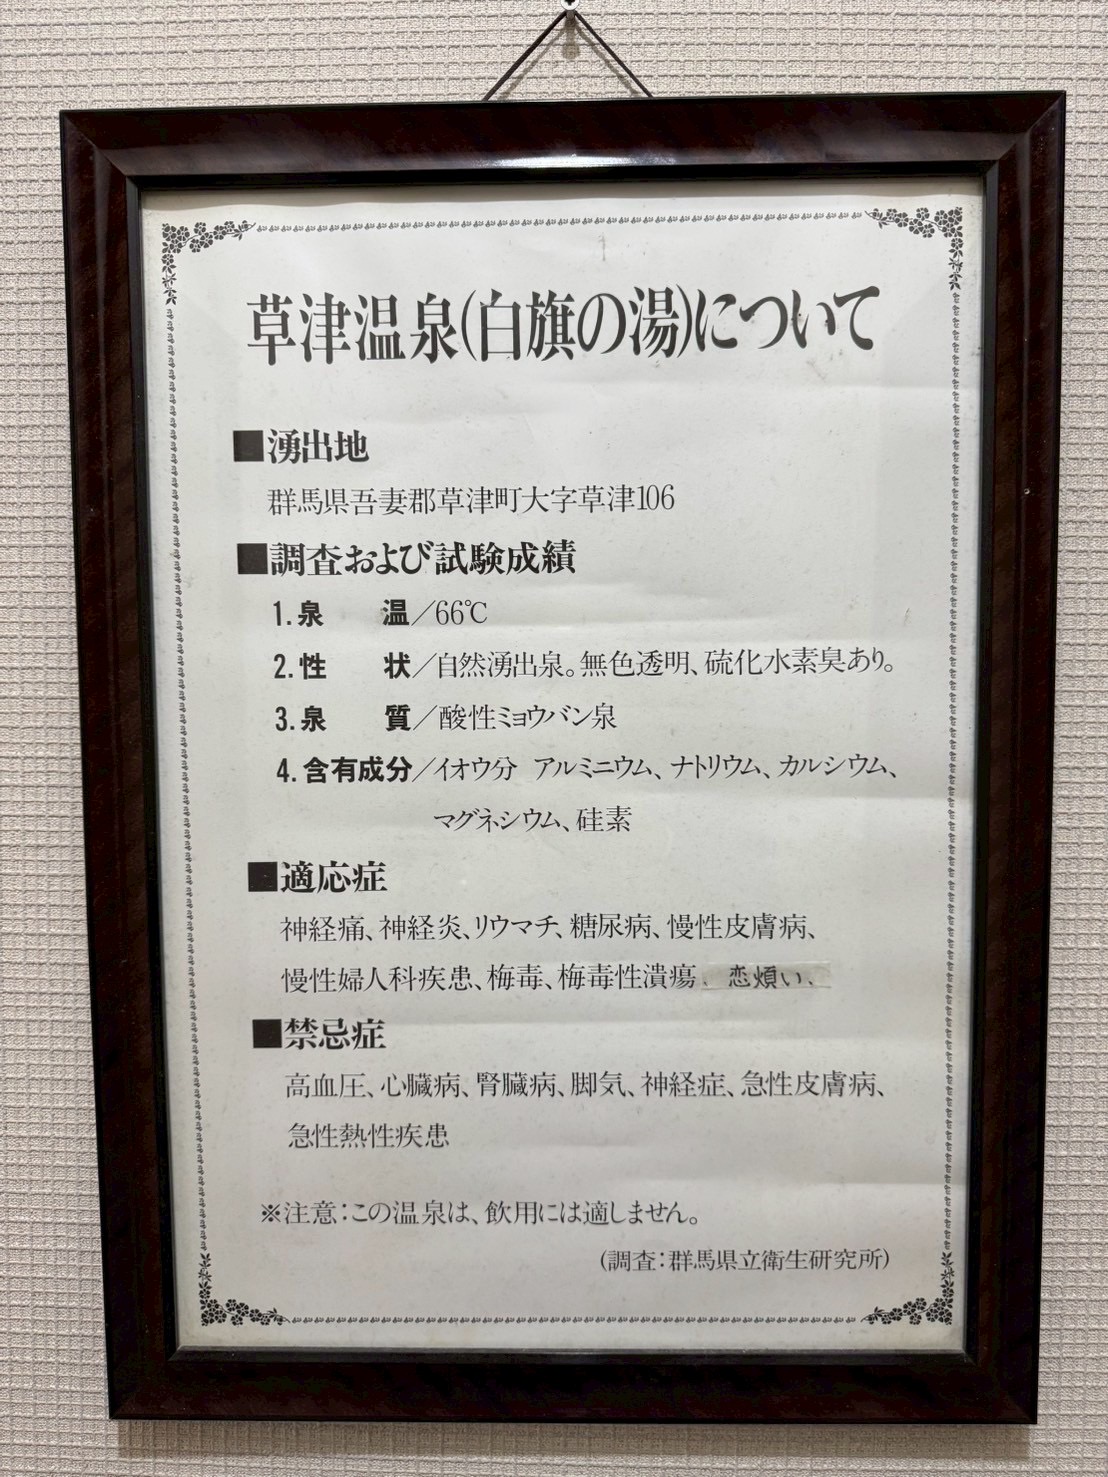 草津温泉(白旗の湯)について
■湧出地
群馬県吾妻郡草津町大字草津106
■調査および試験成績
1.泉　温／66℃
2.性　状／自然湧出泉。無色透明、硫化水素臭あり。
3.泉　質／酸性ミョウバン泉
4.含有成分／イオウ分 アルミニウム、ナトリウム、カルシウム、
マグネシウム、硅素
■適応症
神経痛、神経炎、リウマチ、糖尿病、慢性皮膚病、
慢性婦人科疾患、梅毒、梅毒性潰瘍、恋煩い、
■禁忌症
高血圧、心臓病、腎臓病、脚気、神経症、急性皮膚病、
急性熱性疾患
※注意：この温泉は、飲用には適しません。
(調査：群馬県立衛生研究所)